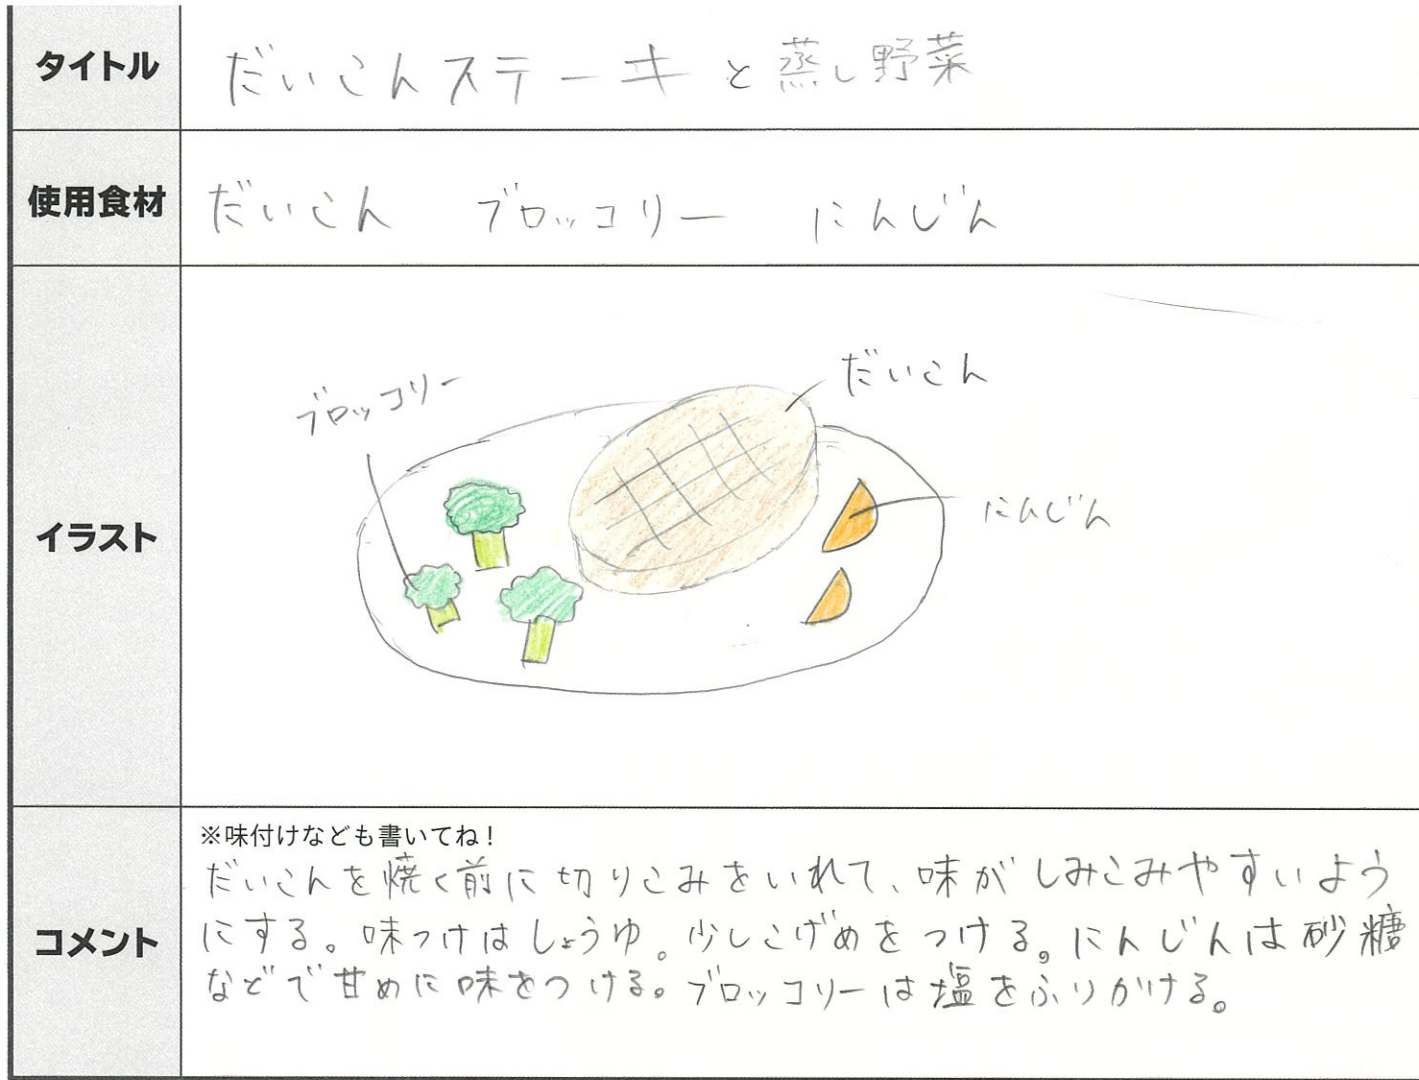 タイトル
だいこんステーキと蒸し野菜
使用食材
だいこん ブロッコリー にんじん
イラスト
ブロッコリー
だいこん
にんじん
コメント
※味付けなども書いてね！
だいこんを焼く前に切りこみをいれて、味がしみこみやすいよう
にする。味つけはしょうゆ。少しこげめをつける。にんじんは砂糖
などで甘めに味をつける。ブロッコリーは塩をふりかける。